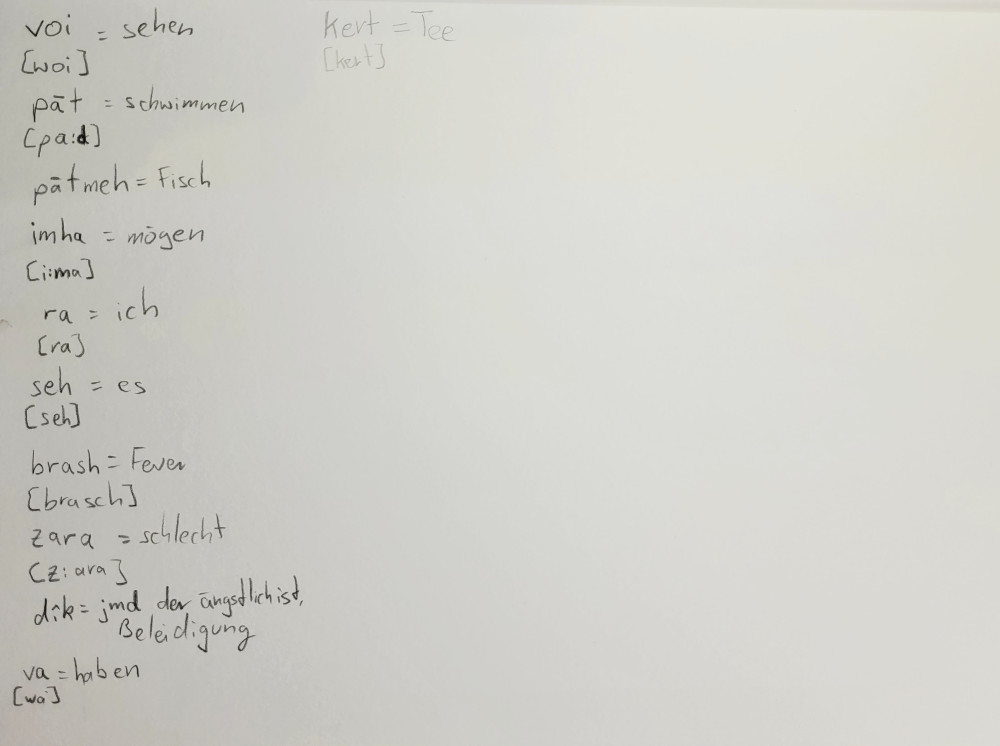 voi = sehen
[woi]
pāt = schwimmen
[pa:d]
pātmeh = Fisch
imha = mögen
[i:ma]
ra = ich
[ra]
seh = es
[seh]
brash = Feuer
[brasch]
zara = schlecht
[z:ara]
dîk = jmd der ängstlich ist,
Beleidigung
va = haben
[wa]
Kert = Tee
[kert]